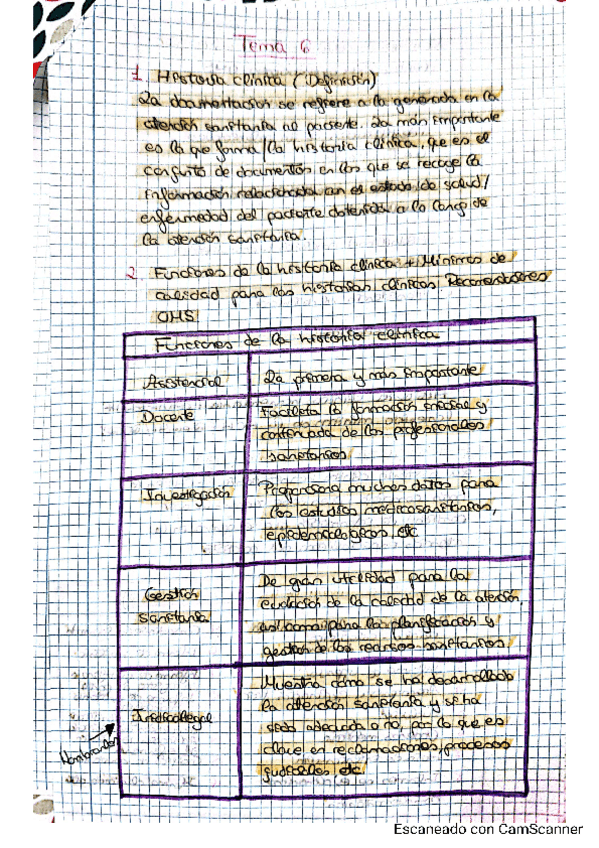 Tema 6
1. Historia clínica (Definición)
La documentación se refiere a la generada en la
atención sanitaria al paciente. La más importante
es la que forma la historia clínica, que es el
conjunto de documentos en los que se recoge la
información relacionada con el estado de salud/
enfermedad del paciente obtenida a lo largo de
la atención sanitaria.
2. Funciones de la historia clínica + Mínimos de
calidad para las historias clínicas
OMS
Funciones de la historia clínica
Asistencial
La primera y más importante
Docente
Facilita la formación inicial y
continuada de los profesionales
sanitarios
Investigación
Proporciona muchos datos para
los estudios médicosanitarios,
epidemiológicos, etc
Gestión
sanitaria
De gran utilidad para la
evaluación de la calidad de la atención,
así como para la planificación y
gestión de los recursos sanitarios.
Jurídicolegal
Muestra cómo se ha desarrollado
la atención sanitaria y si ha
sido adecuada o no, por lo que es
clave en reclamaciones, procesos
judiciales, etc
Escaneado con CamScanner